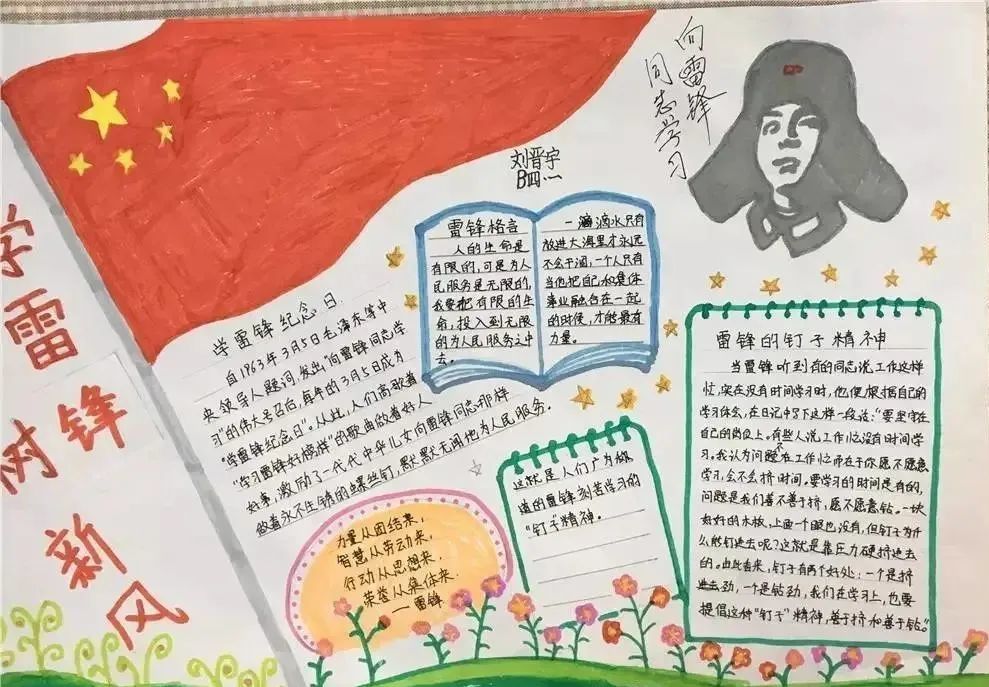 学雷锋
树新风
向雷锋
同志学习
刘晋宇
学雷锋纪念日
自1963年3月5日毛泽东等中
央领导人题词,发出"向雷锋同志学
习"的伟大号召后,每年的3月5日成为
"学雷锋纪念日"。从此,人们高歌着
"学习雷锋好榜样"的歌曲做着好人
好事,激励了一代代中华儿女向雷锋同志那样
做着永不生锈的螺丝钉,默默无闻地为人民服务。
雷锋格言
人的生命是
有限的,可是为人
民服务是无限的,
我要把有限的生
命,投入到无限
的为人民服务之中
去。
一滴水只有
放进大海里才永远
不会干涸,一个人只有
当他把自己和集体
事业融合在一起
的时候,才能最有
力量。
力量从团结来,
智慧从劳动来,
行动从思想来,
荣誉从集体来.
——雷锋
这就是人们广为
的雷锋刻苦学习的
"钉子"精神。
雷锋的钉子精神
当雷锋听到有的同志说工作这样
忙,实在没有时间学习时,他便根据自己的
学习体会,在日记中写下这样一段话:"要坚守在
自己的岗位上。有些人说工作忙没有时间学
习,我认为问题不在工作忙而在于你愿不愿意
学习,会不会挤时间。要学习的时间是有的,
问题是我们善不善于挤,愿不愿意钻。一块
好好的木板,上面一个眼也没有,但钉子为什
么能钉进去呢?这就是靠压力硬挤进去
的。由此看来,钉子有两个好处:一个是挤
进去劲,一个是钻劲,我们在学习上,也要
提倡这种"钉子"精神,善于挤和善于钻。"